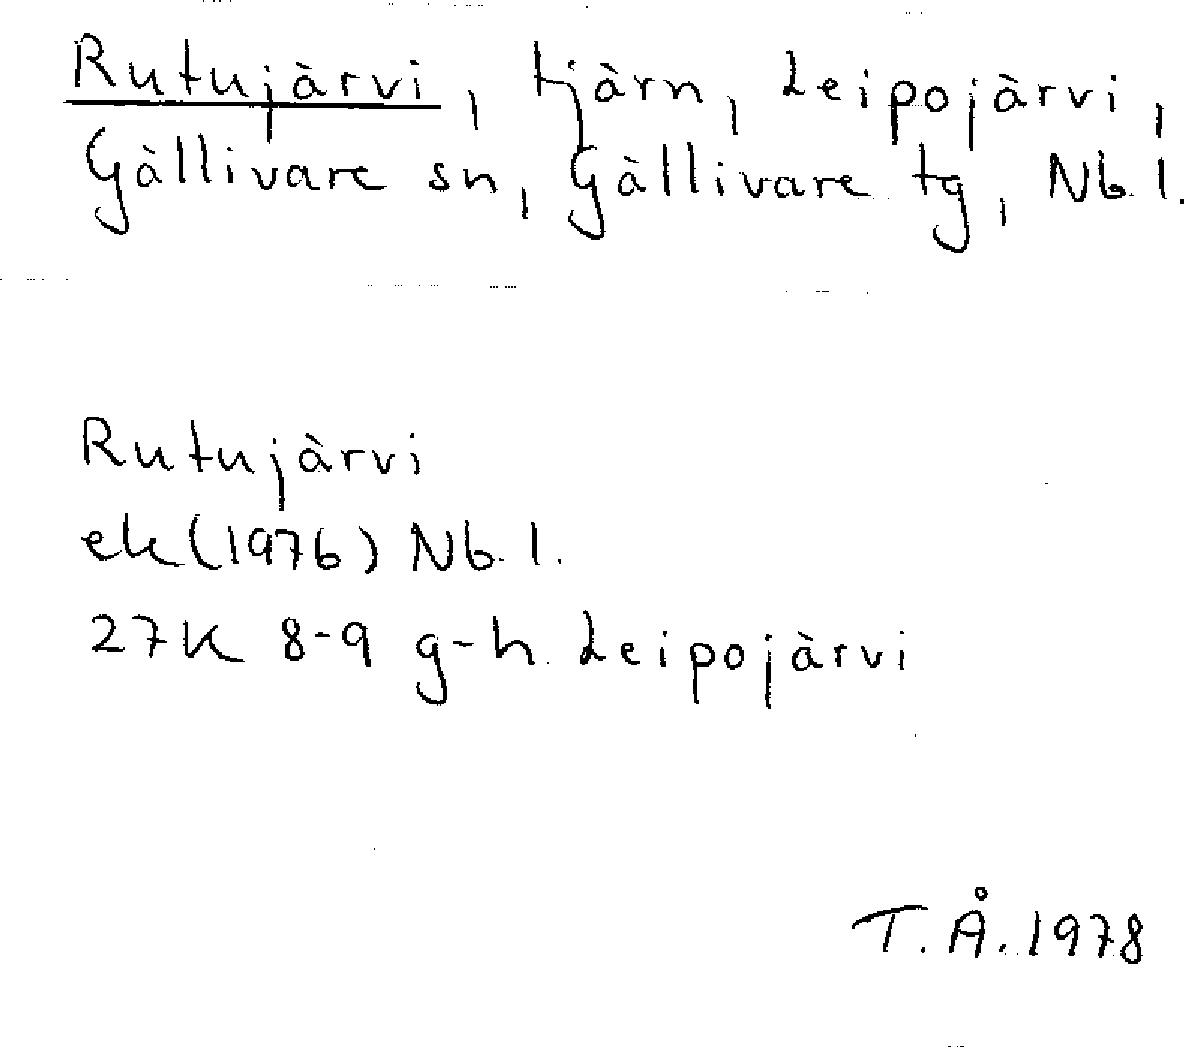 Rutujärvi, tjärn, Leipojärvi,
Gällivare sn, Gällivare tg, Nb. l.
Rutujärvi
ek (1976) Nb. l.
27K 8-9 g-h Leipojärvi
T. Å. 1978